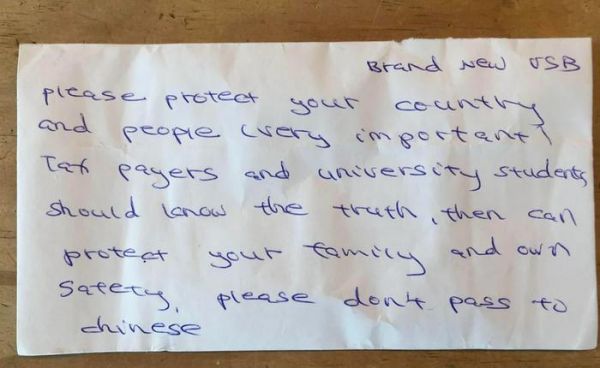 Brand New USB
please protect your country
and people (very important)
Tax payers and university students
should know the truth, then can
protect your family and own
safety, please don't pass to
chinese